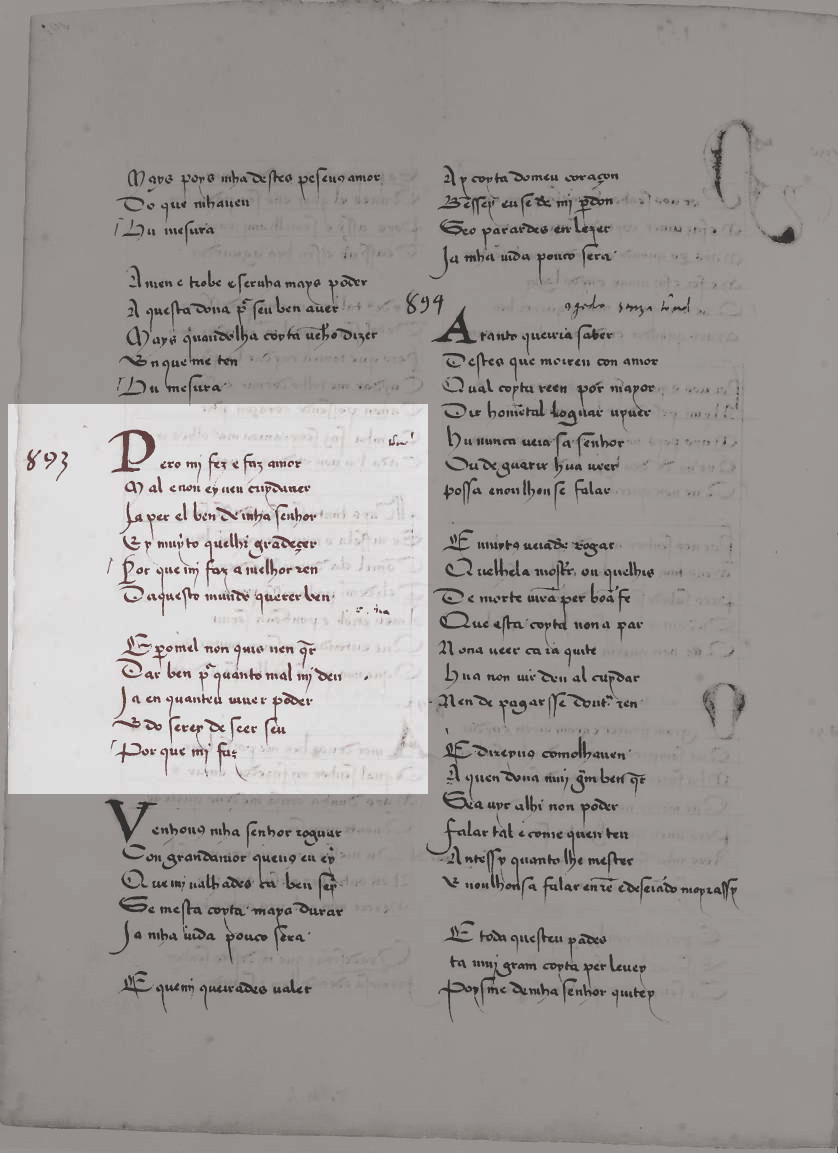 Mays poys mha destes pesseus amor
Do que mhauen
Hu mesura
Amen e trobe e seruha mays poder
A questa dona pr seu ben auer
Mays quandolha coyta ueho dizer
En que me ten
Hu mesura
893
Pero mj fez e faz amor
Mal e non ey neu cuydaner
Ja per el ben de mha senhor
Ey muyto quelhi gradeçer
Por que mj faz a melhor ren
Daquesto mundo querer ben
E pomel non quis nen qr
Dar ben pr quanto mal mj deu
Ja en quanteu uiuer poder
Edo serey de seer seu
Por que mj faz
Venhouꝯ mha senhor roguar
Con grandamor queuꝯ eu ey
Que mi ualhades ca ben sey
Se mesta coyta mays durar
Ja mha uida pouco sera
E quemj queirades ualer
Ay coyta do meu coraçon
Bessey eu se de mi pdon
Seo parardes en lezer
Ja mha uida pouco sera
894
A tanto queiria saber
Destes que moiren con amor
Qual coyta teen por mayor
Dir homẽ tal loguar uyuer
Hu nunca ueia sa senhor
Ou de guarir hua ueer
possa enoulhonse falar
E muytꝯ ueiade rogar
Quelhela mostr ou quelhis
De morte uira per boa fe
Que esta coyta non a par
Nona ueer ca ia quite
Hua non uir deu al cuydar
Nen de pagarsse dout ren
E direyuꝯ comolhauen
A quen dona muj gm ben qr
Sea uyr alhi non poder
falar tal e come quen ten
Antessy quanto lhe mester
E noulhonsa falar en rẽ e deseiado moyrassy
E toda questeu pades
ta muj gram coyta per leuey
Poysme demha senhor quitey